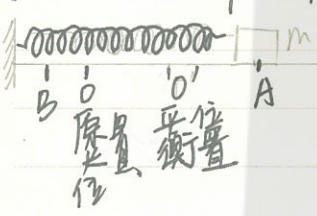 m
B O O' A
原长位置
平衡位置